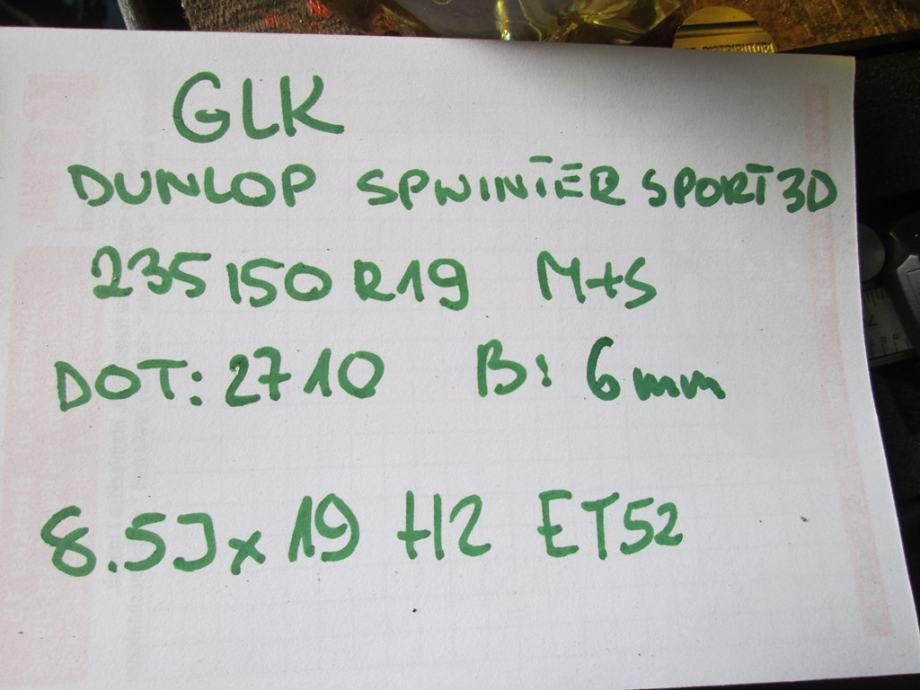 GLK
DUNLOP SPWINTER SPORT 3D
235/50 R19 M+S
DOT: 2710 B: 6mm
8.5J x 19 H2 ET52